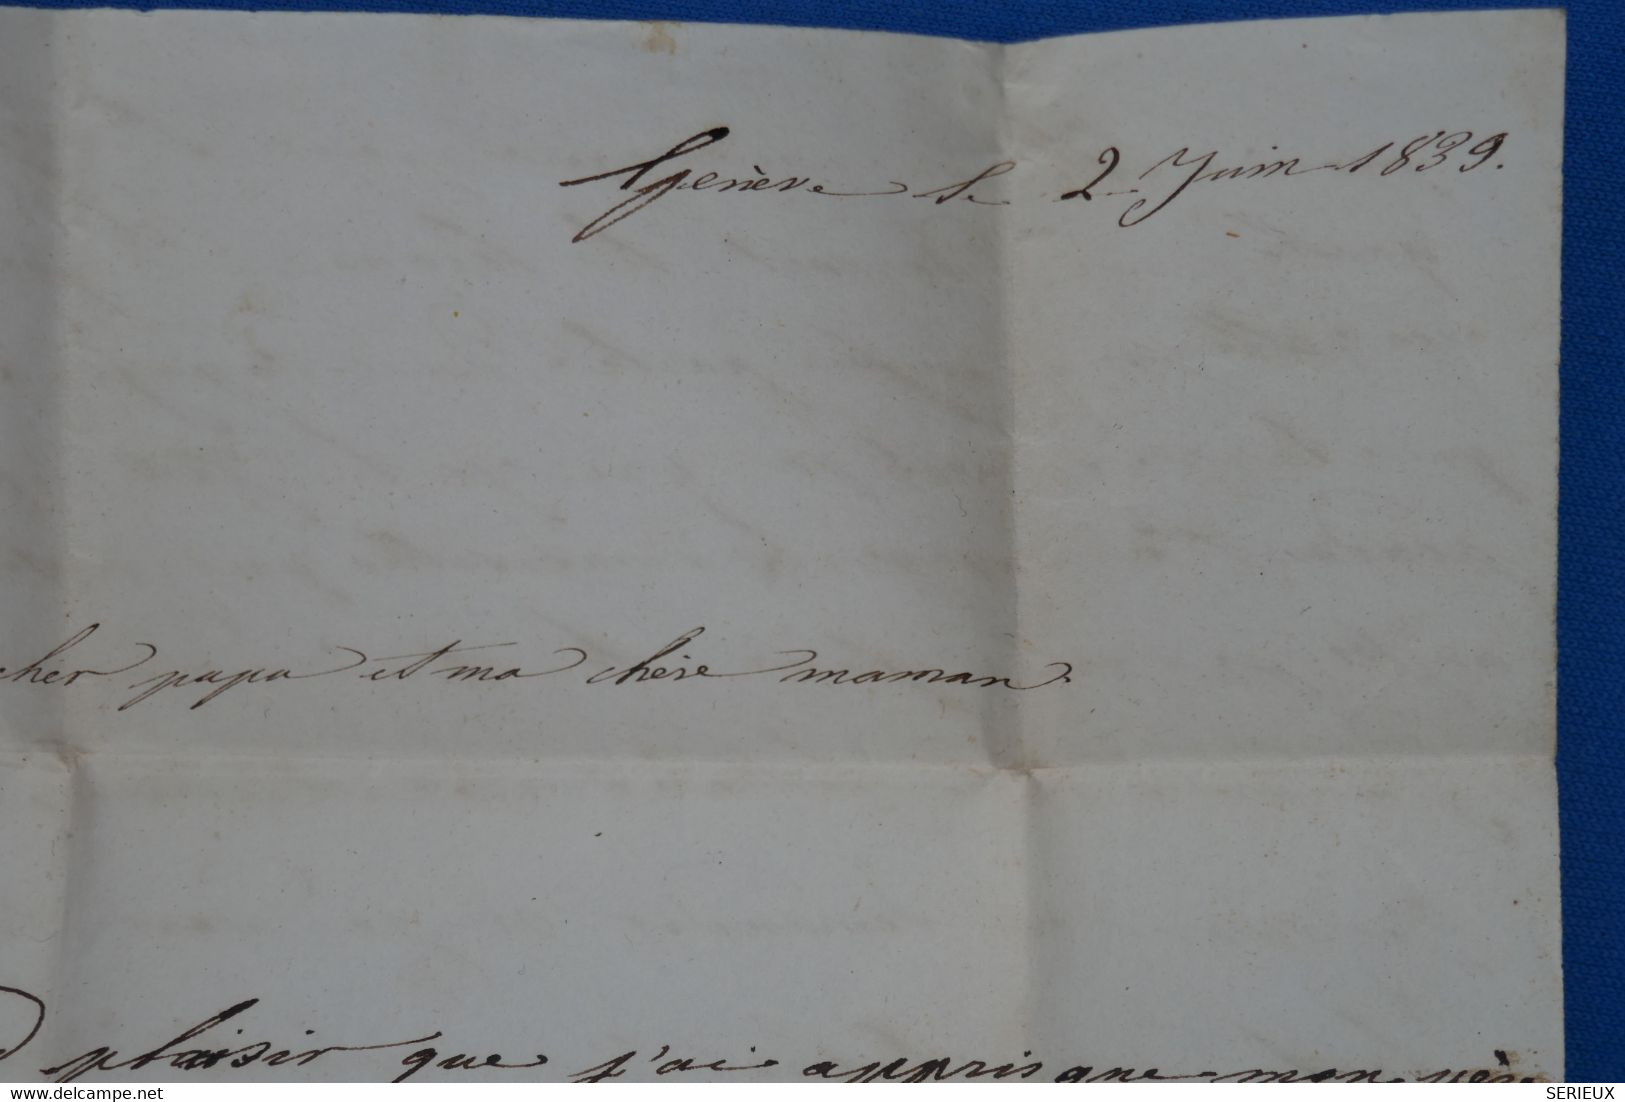 Genève le 2 Juin 1839.
cher papa et ma chère maman
plaisir que j'ai appris que mon
delcampe.net
SERIEUX